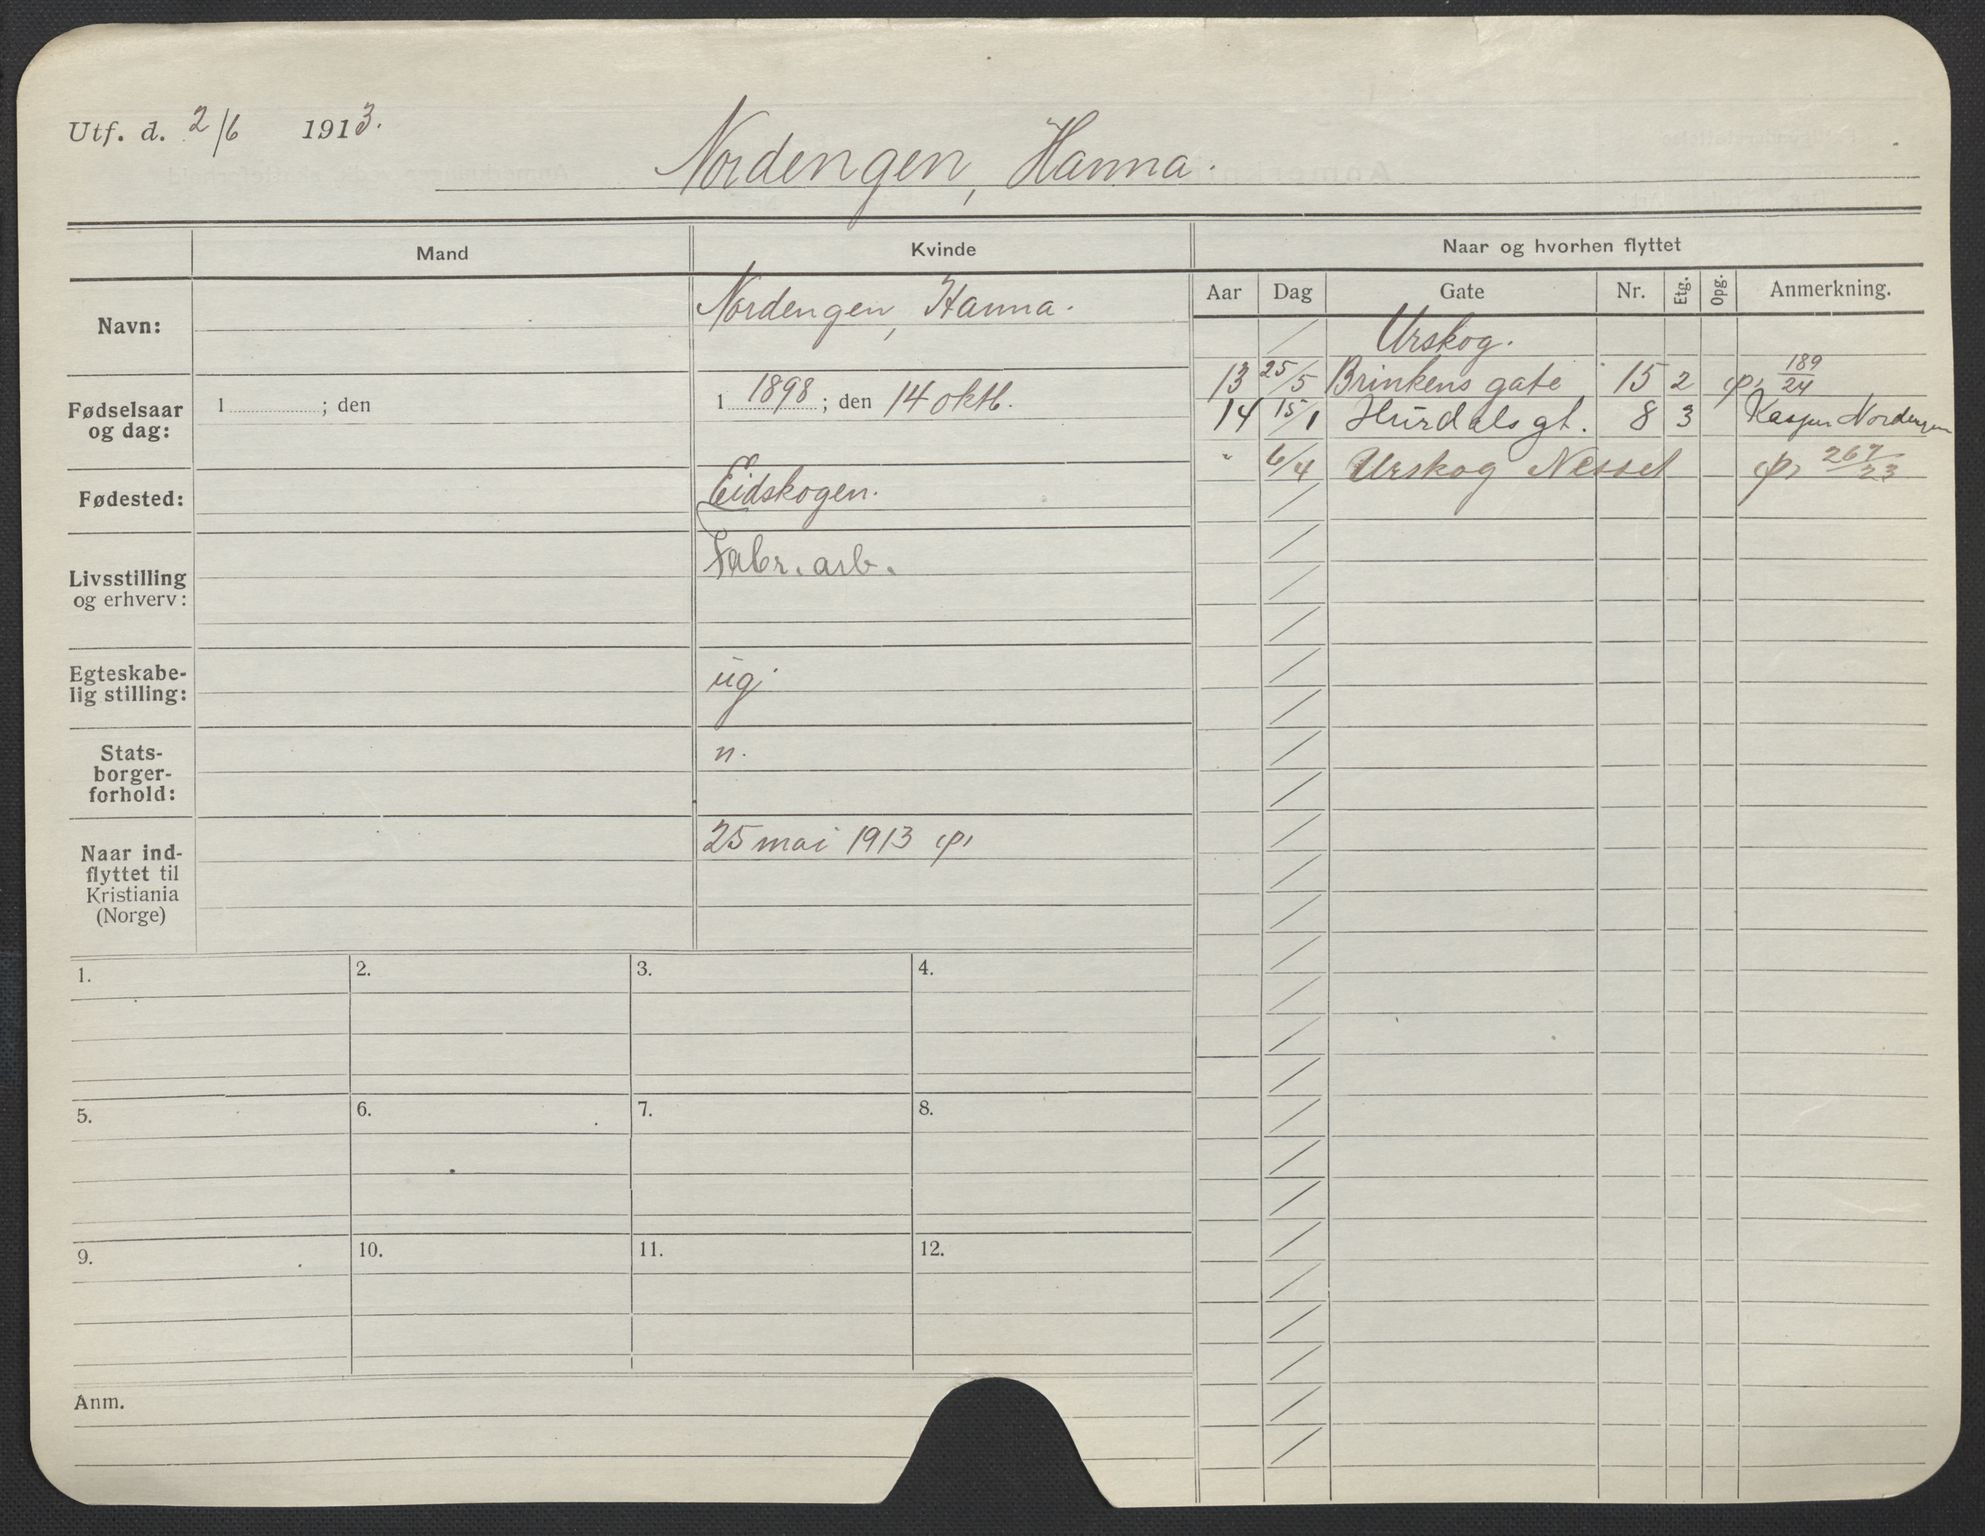 Utf. d. 2/6 1913.
Nordengen, Hanna.
Mand
Kvinde
Naar og hvorhen flyttet
Navn:
Nordengen, Hanna.
Fødselsaar
og dag:
1 ; den
1 1898 ; den 14 oktb.
Fødested:
Eidskogen.
Livsstilling
og erhverv:
Fabr. arb.
Egteskabe-
lig stilling:
ug
Stats-
borger-
forhold:
n.
Naar ind-
flyttet til
Kristiania
(Norge)
25 mai 1913
Aar Dag Gate Nr. Etg. Opg. Anmerkning.
Urskog.
13 25/5 Brinkens gate 15 2 189/24
14 15/1 Hurdals gt. 8 3 Kasper Nordengen
" 6/4 Urskog Nesset 267/23
1.
2.
3.
4.
5.
6.
7.
8.
9.
10.
11.
12.
Anm.